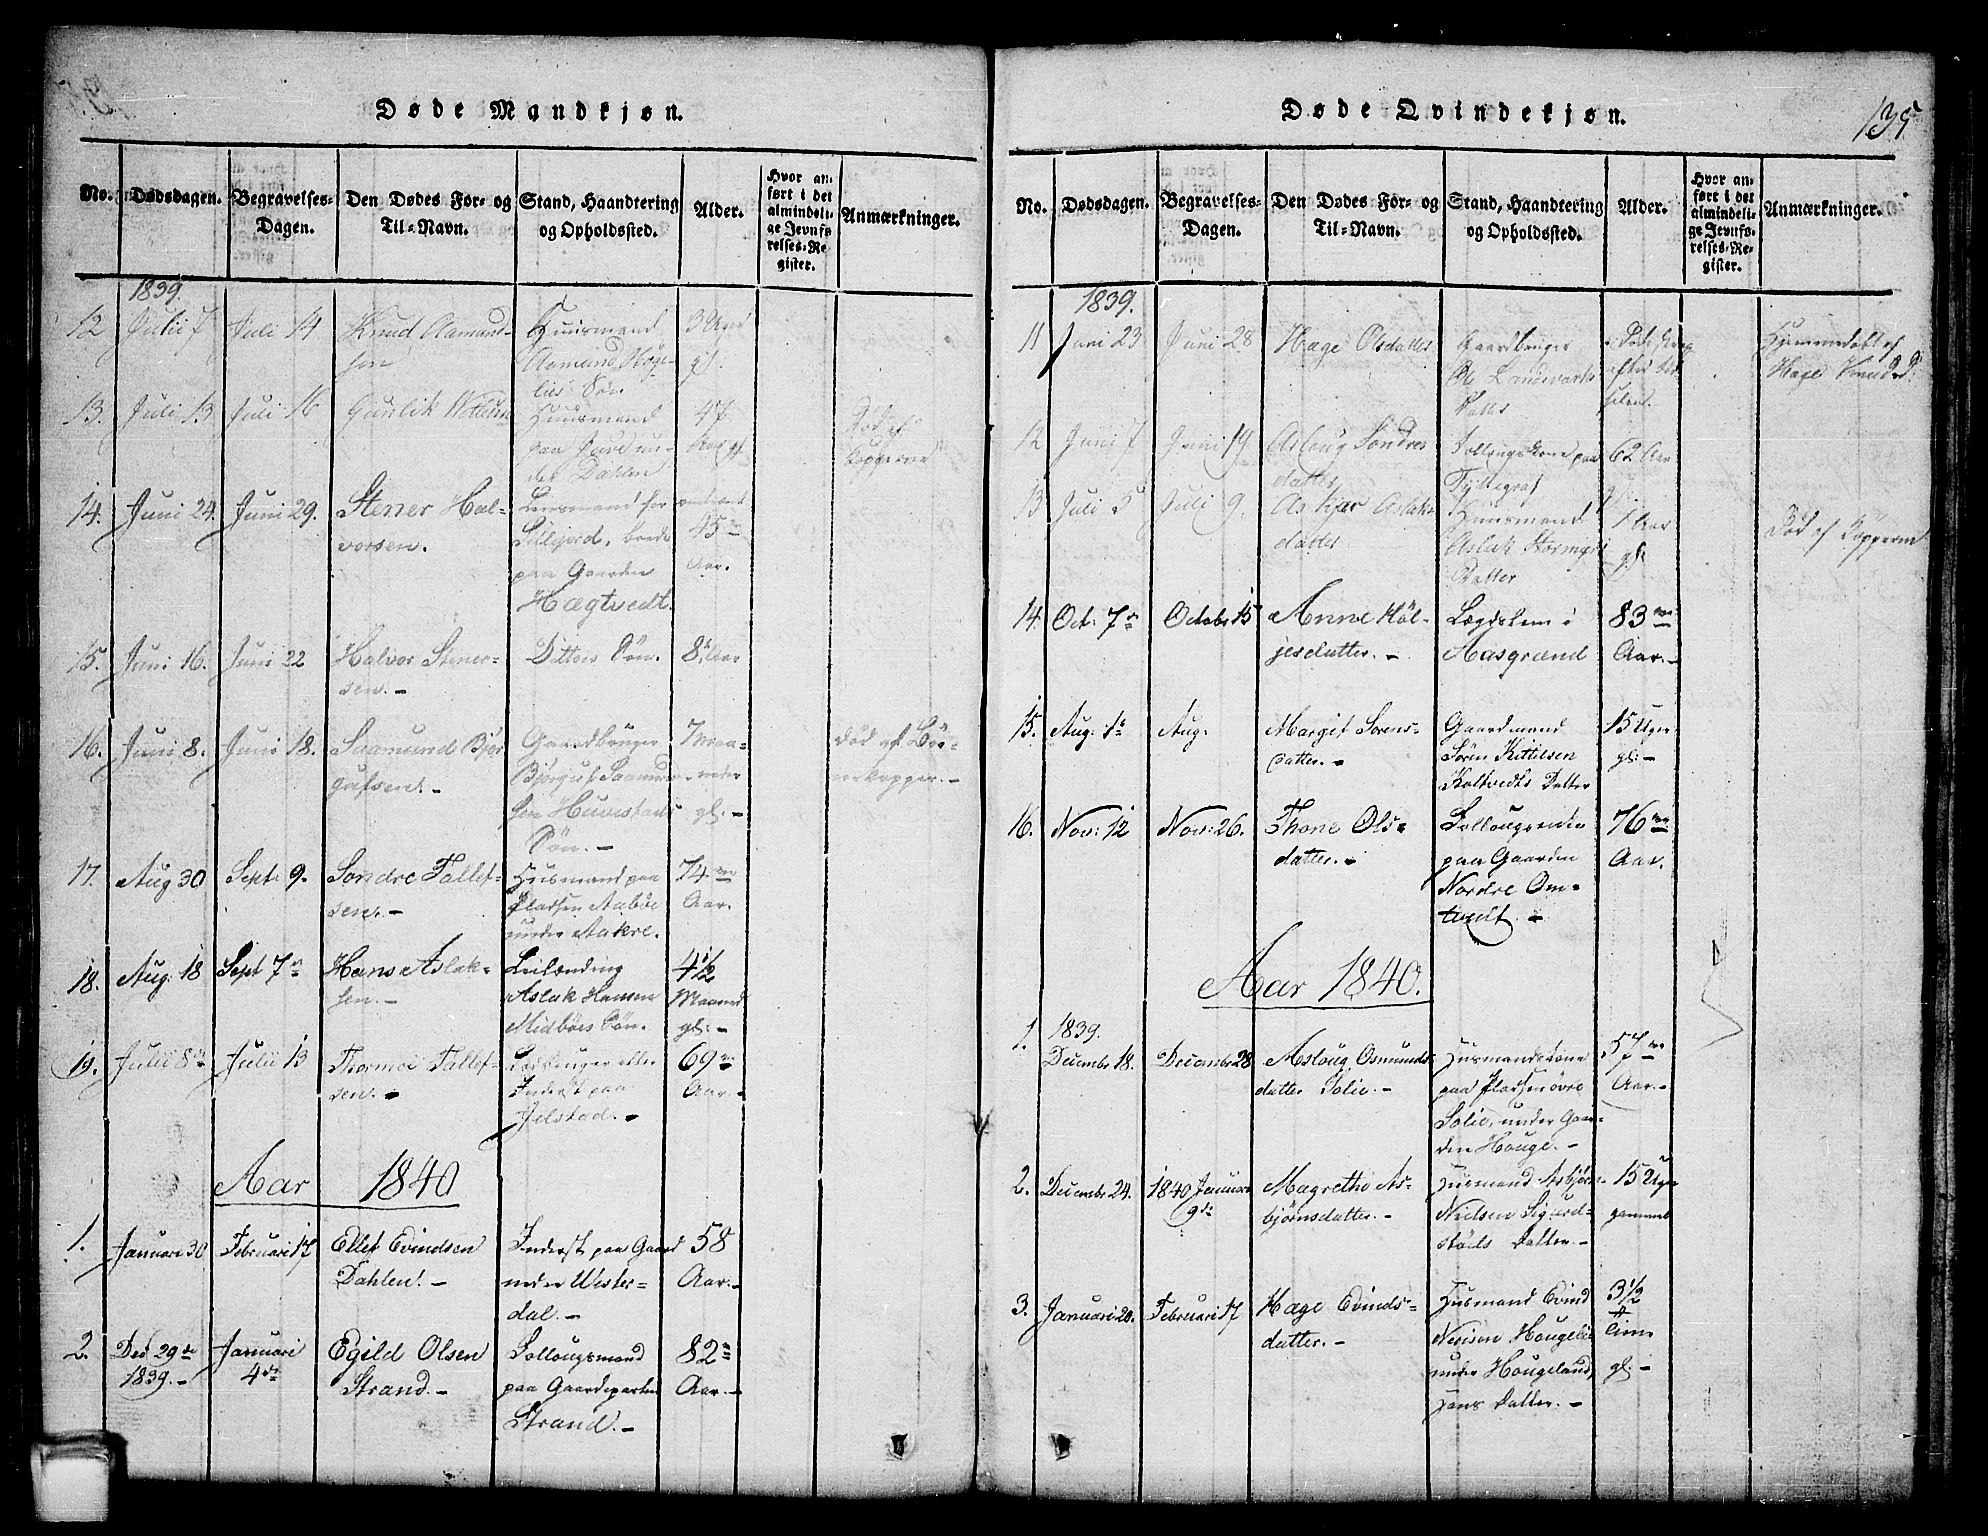 Døde Mandkjøn.
No. Dødsdagen. Begravelses-Dagen. Den Dødes For- og Til-Navn. Stand, Haandtering og Opholdssted. Alder. Hvor anført i det almindelige Jevnførelses-Register. Anmærkninger.
1839.
12 Julii 7 Juli 14 Knud Aamundsen Huusmand Aamund Søn 3 Uger gl.
13. Juli 13 Juli 16 Gunlik Huusmand paa under Dahlen 47 Aar gl. Død af Kopperne
14. Juni 24. Juni 29. Stener Halvorsen. Lensmand for Lillejord, boede paa Gaarden Hægtvedt. 45 Aar.
15. Juni 16. Juni 22 Halvor Stenersen. – Dittos Søn. 8 Aar
16. Juni 8. Juni 18. Saamund Bjørgufsen. – Gaardbruger Bjørguf Saamundsen Søn. – 7 Maaneder gl. – Død af Børnekopper. –
17. Aug 30 Sept. 9. Søndre Tallefsen. – Husmand paa Pladsen Aabøe under Aakre. 74 Aar.
18. Aug. 18 Sept 7 Hans Aslaksen. – Leilænding Aslak Hansen Midbøes Søn. 4½ Maaned gl: –
19. Julii 8de Julii 13 Thormoe Tallefsen. – eller Inderst paa Jelstad. – 69 Aar. –
Aar 1840
1. Januari 30 Februari 17 Ellef Evindsen Dahlen. – Inderst paa Gaard nedre Westerdal. – 58 Aar. –
2. Dec 29de 1839. – Januari 4de Egild Olsen Strand. – Follougsmand paa Gaardeparten Strand. – 82 Aar. –
Døde Qvindekjøn. 135
No. Dødsdagen. Begravelses-Dagen. Den Dødes For- og Til-Navn. Stand, Haandtering og Opholdssted. Alder. Hvor anført i det almindelige Jevnførelses-Register. Anmærkninger.
1839.
11 Juni 23 Juni 28 Hæge Olsdatter Gaardbruger Datter Hjemmedøbt af Hæge
12 Juni 7 Juni 19 Aslaug Søndresdatter Follougskone paa 62 Aar gl.
13 Juli 5 Juli 9. Askjær Aslaksdatter Huusmand Aslak Datter 1 Aar gl. Død af Kopperne
14. Oct: 7de Octobr 15 Anne Höljesdatter. – Lægdslem i Aasgrænd 83 Aar. –
15. Aug: 1s Aug: Margit Sørensdatter. – Gaardmand Søren Kittilsen Kaltvedts Datter 15 Uger gl: –
16. Nov: 12 Nov: 26. Thone Olsdatter. – Follougsenke paa Gaarden Nordre Omtvedt. – 76 Aar.
Aar 1840.
1. 1839. Decembr 18. Decembr 28 Asloug Osmundsdatter Solie. – Husmandskone paa Pladsen øvre Solie, under Gaarden Houge. – 57 Aar. –
2. Decembr 24. 1840 Januari 9de Magrethe Asbjörnsdatter. – Husmand Asbjørn Nielsen Sigurdstöils Datter. – 15 Uger gammel
3. Januari 20. Februari 17 Hæge Evindsdatter. – Husmand Evind Nerisen Hougelie under Hougeland, Hans Datter. – 3½ Time gl. –